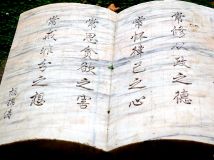 常修从政之德
常怀律己之心
常思贪欲之害
常戒非分之想